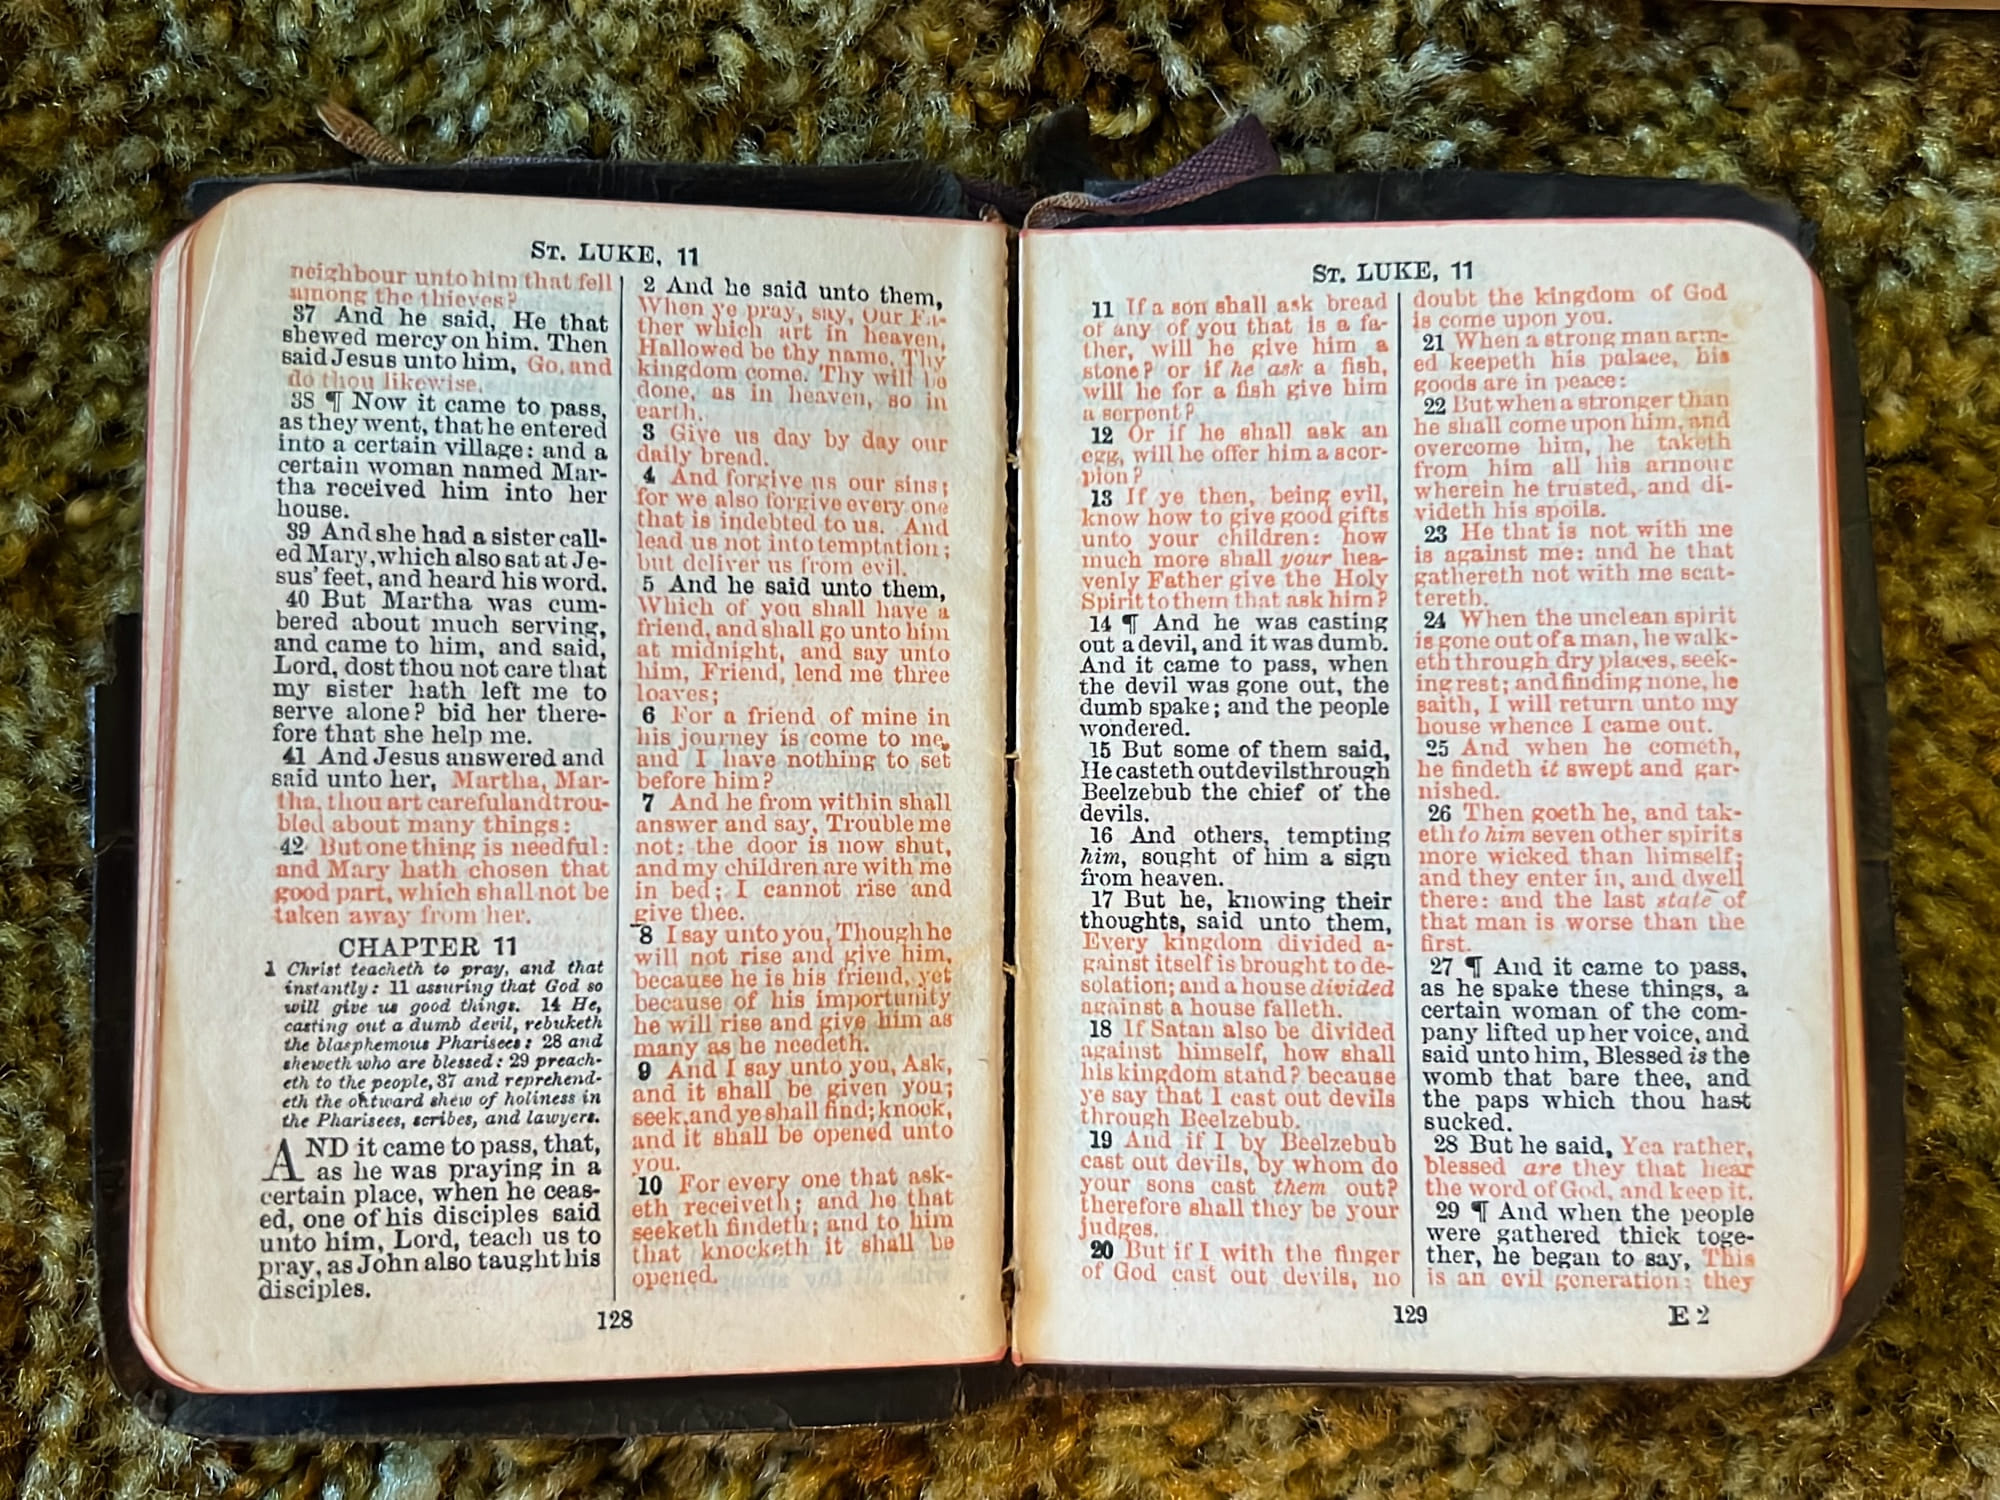 St. LUKE, 11
neighbour unto him that fell
among the thieves?
37 And he said, He that
shewed mercy on him. Then
said Jesus unto him, Go, and
do thou likewise.
38 ¶ Now it came to pass,
as they went, that he entered
into a certain village: and a
certain woman named Mar-
tha received him into her
house.
39 And she had a sister call-
ed Mary, which also sat at Je-
sus' feet, and heard his word.
40 But Martha was cum-
bered about much serving,
and came to him, and said,
Lord, dost thou not care that
my sister hath left me to
serve alone? bid her there-
fore that she help me.
41 And Jesus answered and
said unto her, Martha, Mar-
tha, thou art careful and trou-
bled about many things:
42 But one thing is needful:
and Mary hath chosen that
good part, which shall not be
taken away from her.
CHAPTER 11
1 Christ teacheth to pray, and that
instantly: 11 assuring that God so
will give us good things. 14 He,
casting out a dumb devil, rebuketh
the blasphemous Pharisees: 28 and
sheweth who are blessed: 29 preach-
eth to the people, 37 and reprehend-
eth the outward shew of holiness in
the Pharisees, scribes, and lawyers.
AND it came to pass, that,
as he was praying in a
certain place, when he ceas-
ed, one of his disciples said
unto him, Lord, teach us to
pray, as John also taught his
disciples.
2 And he said unto them,
When ye pray, say, Our Fa-
ther which art in heaven,
Hallowed be thy name. Thy
kingdom come. Thy will be
done, as in heaven, so in
earth.
3 Give us day by day our
daily bread.
4 And forgive us our sins;
for we also forgive every one
that is indebted to us. And
lead us not into temptation;
but deliver us from evil.
5 And he said unto them,
Which of you shall have a
friend, and shall go unto him
at midnight, and say unto
him, Friend, lend me three
loaves;
6 For a friend of mine in
his journey is come to me,
and I have nothing to set
before him?
7 And he from within shall
answer and say, Trouble me
not: the door is now shut,
and my children are with me
in bed; I cannot rise and
give thee.
8 I say unto you, Though he
will not rise and give him,
because he is his friend, yet
because of his importunity
he will rise and give him as
many as he needeth.
9 And I say unto you, Ask,
and it shall be given you;
seek, and ye shall find; knock,
and it shall be opened unto
you.
10 For every one that ask-
eth receiveth; and he that
seeketh findeth; and to him
that knocketh it shall be
opened.
128
St. LUKE, 11
11 If a son shall ask bread
of any of you that is a fa-
ther, will he give him a
stone? or if he ask a fish,
will he for a fish give him
a serpent?
12 Or if he shall ask an
egg, will he offer him a scor-
pion?
13 If ye then, being evil,
know how to give good gifts
unto your children: how
much more shall your hea-
venly Father give the Holy
Spirit to them that ask him?
14 ¶ And he was casting
out a devil, and it was dumb.
And it came to pass, when
the devil was gone out, the
dumb spake; and the people
wondered.
15 But some of them said,
He casteth out devils through
Beelzebub the chief of the
devils.
16 And others, tempting
him, sought of him a sign
from heaven.
17 But he, knowing their
thoughts, said unto them,
Every kingdom divided a-
gainst itself is brought to de-
solation; and a house divided
against a house falleth.
18 If Satan also be divided
against himself, how shall
his kingdom stand? because
ye say that I cast out devils
through Beelzebub.
19 And if I by Beelzebub
cast out devils, by whom do
your sons cast them out?
therefore shall they be your
judges.
20 But if I with the finger
of God cast out devils, no
doubt the kingdom of God
is come upon you.
21 When a strong man arm-
ed keepeth his palace, his
goods are in peace:
22 But when a stronger than
he shall come upon him, and
overcome him, he taketh
from him all his armour
wherein he trusted, and di-
videth his spoils.
23 He that is not with me
is against me: and he that
gathereth not with me scat-
tereth.
24 When the unclean spirit
is gone out of a man, he walk-
eth through dry places, seek-
ing rest; and finding none, he
saith, I will return unto my
house whence I came out.
25 And when he cometh,
he findeth it swept and gar-
nished.
26 Then goeth he, and tak-
eth to him seven other spirits
more wicked than himself;
and they enter in, and dwell
there: and the last state of
that man is worse than the
first.
27 ¶ And it came to pass,
as he spake these things, a
certain woman of the com-
pany lifted up her voice, and
said unto him, Blessed is the
womb that bare thee, and
the paps which thou hast
sucked.
28 But he said, Yea rather,
blessed are they that hear
the word of God, and keep it.
29 ¶ And when the people
were gathered thick toge-
ther, he began to say, This
is an evil generation: they
129
E 2